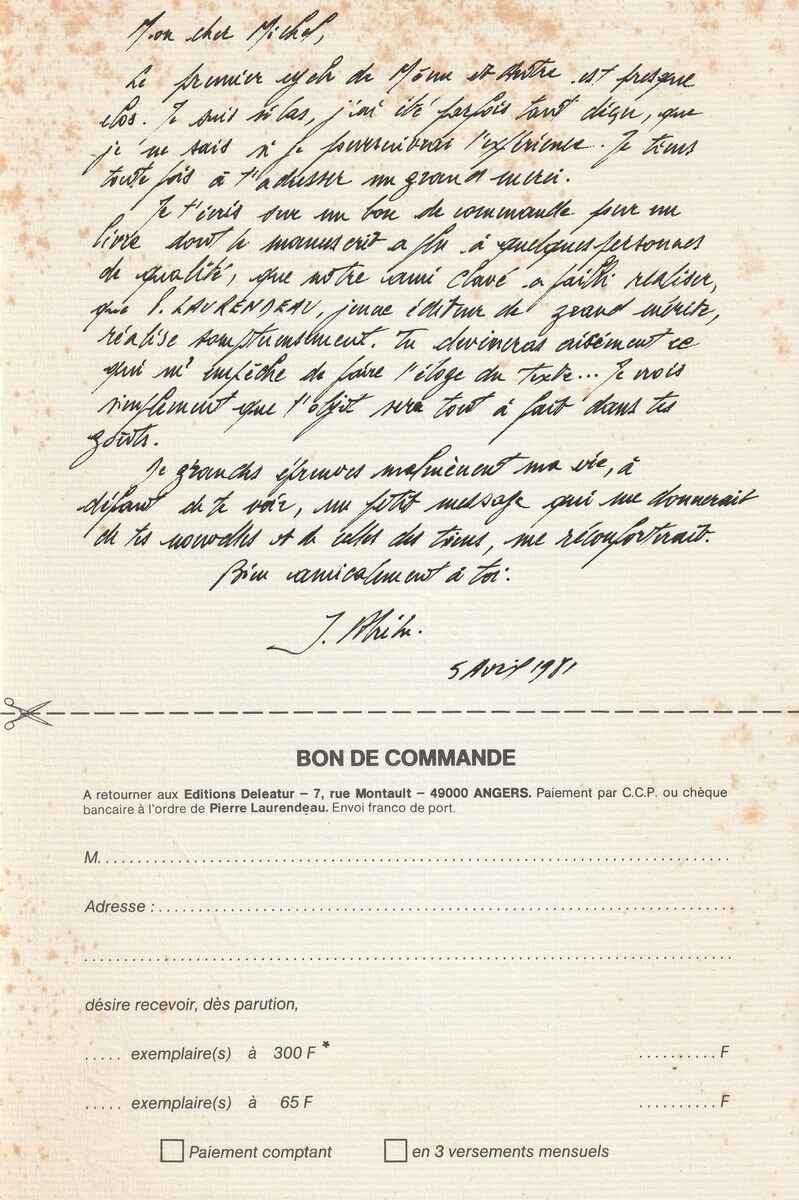 Mon cher Michel,
Le premier cycle de Même et Autre est presque
clos. Je suis si las, j'ai été parfois tant déçu, que
je ne sais si je poursuivrai l'expérience. Je tiens
toutefois à t'adresser un grand merci.
Je t'écris sur un bon de commande pour un
livre dont le manuscrit a plu à quelques personnes
de qualité, que notre ami Clavé a failli réaliser,
que P. LAURENDEAU, jeune éditeur de grand mérite,
réalise somptueusement. Tu devineras aisément ce
qui m'empêche de faire l'éloge du texte... Je crois
simplement que l'objet sera tout à fait dans tes
goûts.
De grandes épreuves malmènent ma vie, à
défaut de te voir, un petit message qui me donnerait
de tes nouvelles et de celles des tiens, me réconforterait.
Bien amicalement à toi.
J.
5 Avril 1981
BON DE COMMANDE
A retourner aux Editions Deleatur – 7, rue Montault – 49000 ANGERS. Paiement par C.C.P. ou chèque
bancaire à l'ordre de Pierre Laurendeau. Envoi franco de port.
M.
Adresse :
désire recevoir, dès parution,
..... exemplaire(s) à 300 F * .......... F
..... exemplaire(s) à 65 F .......... F
Paiement comptant en 3 versements mensuels